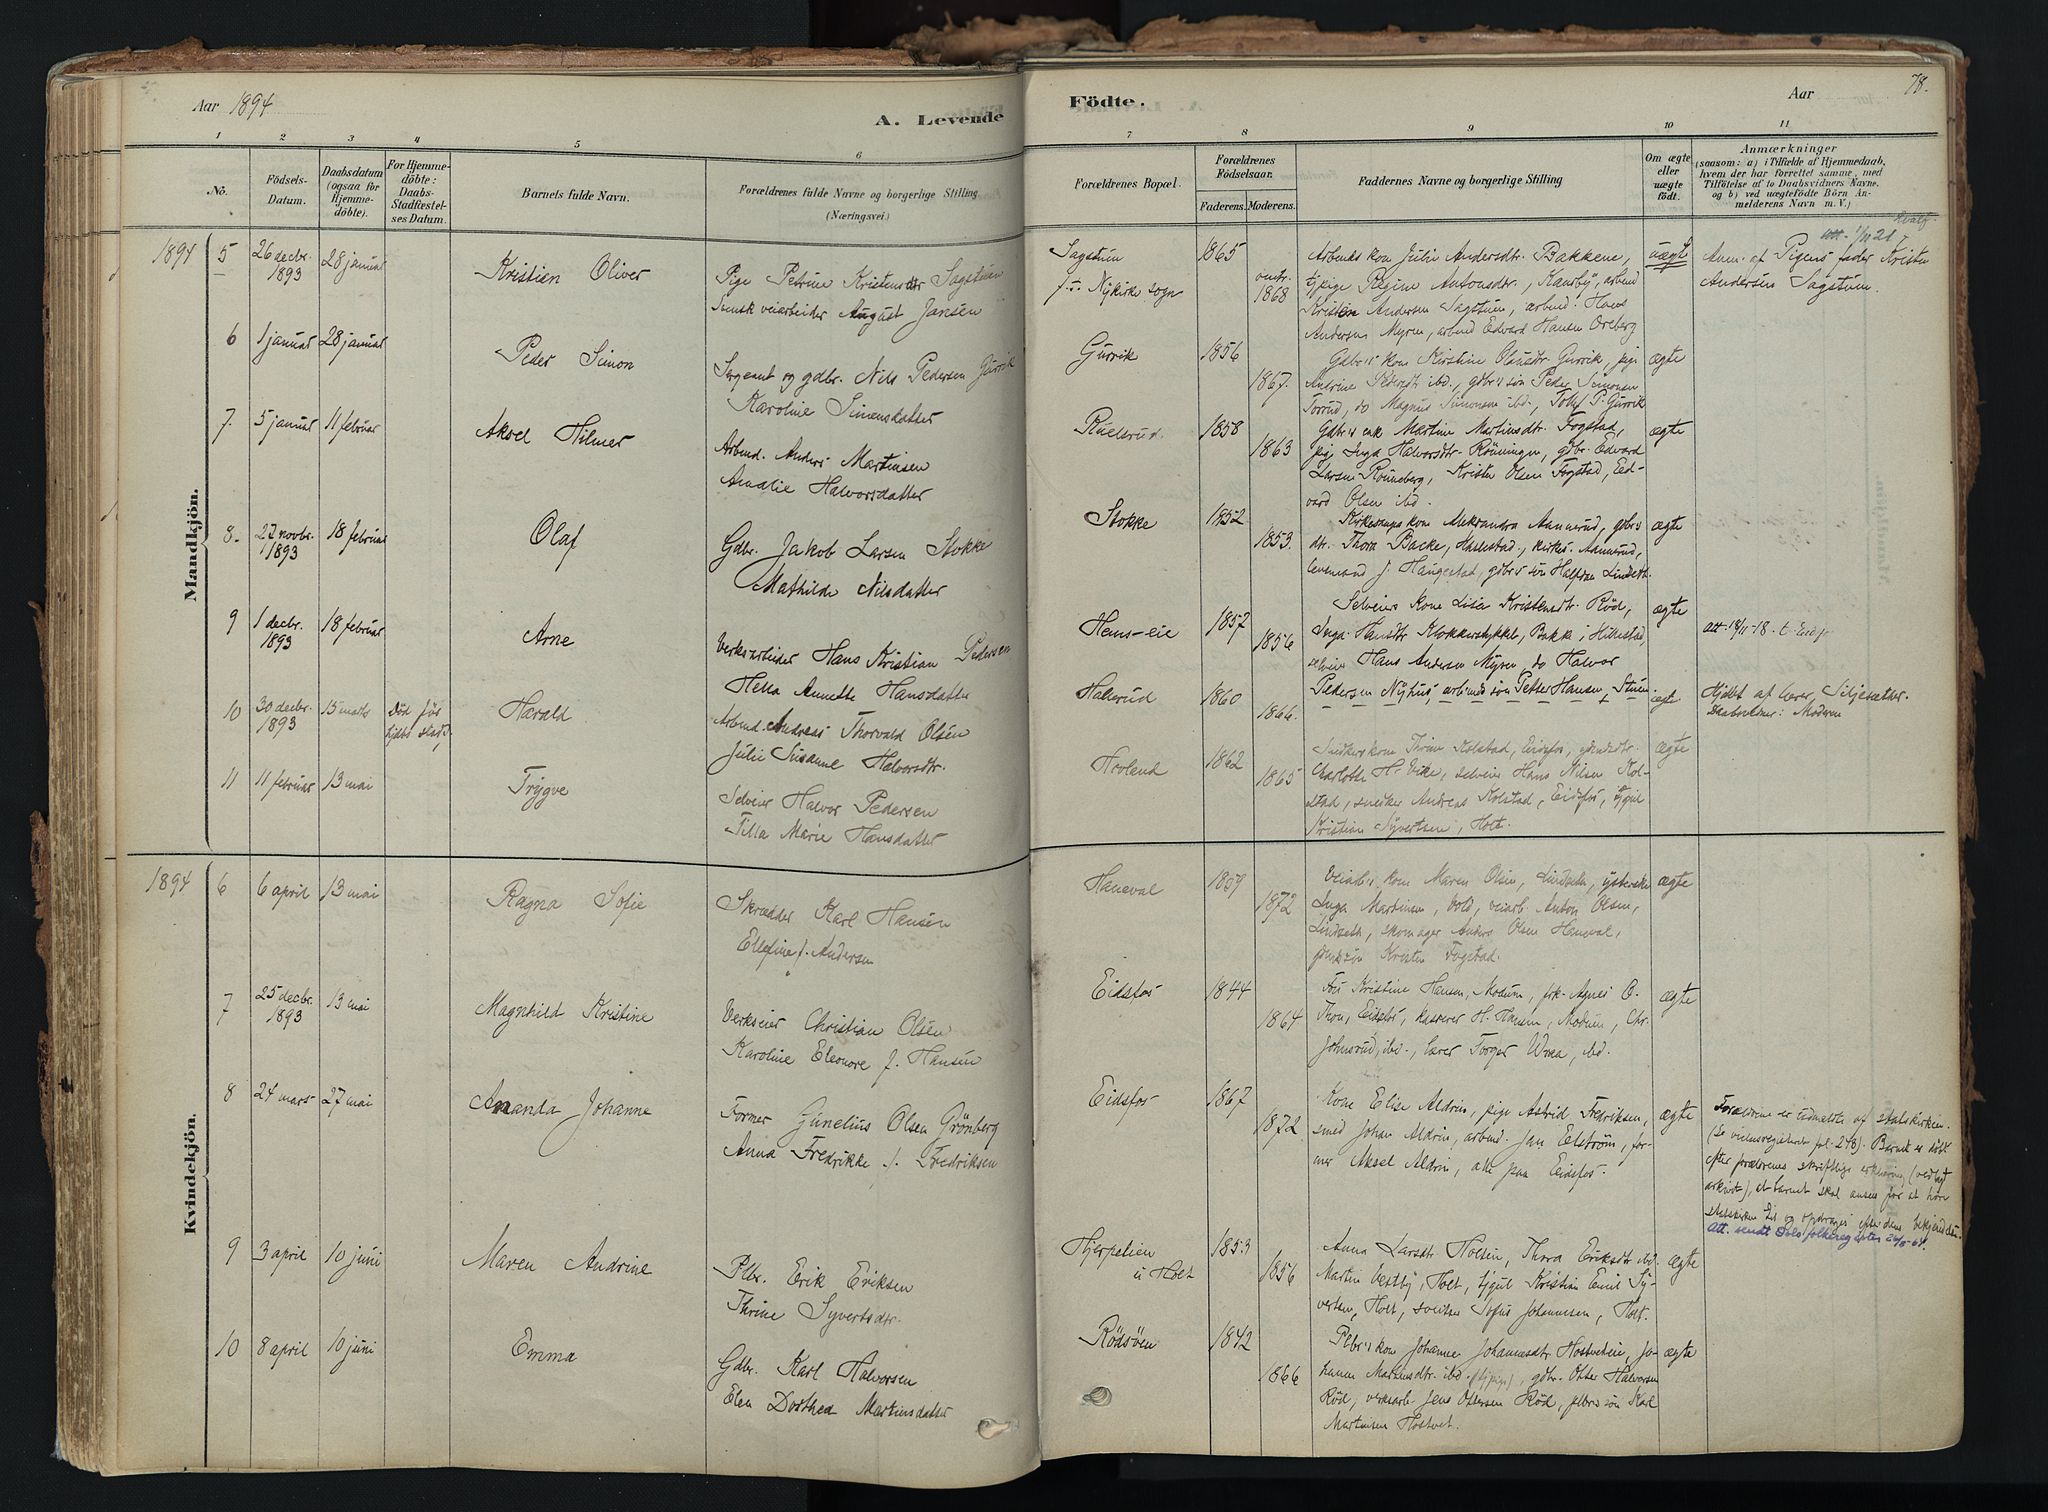 Aar 1894
A. Levende
Födte.
Aar
78.
1
2
3
4
5
6
7
8
9
10
11
No.
Födsels-
Datum.
Daabsdatum
(ogsaa for
Hjemme-
döbte).
For Hjemme-
döbte:
Daabs-
Stadfæstel-
ses Datum.
Barnets fulde Navn.
Forældrenes fulde Navne og borgerlige Stilling
(Næringsvei.)
Forældrenes Bopæl.
Forældrenes
Födselsaar.
Faderens.
Moderens.
Faddernes Navne og borgerlige Stilling
Om ægte
eller
uægte
födt.
Anmærkninger
(saasom: a) i Tilfælde af Hjemmedaab,
hvem der har forrettet samme, med
Tilföielse af to Daabsvidners Navne,
og b) ved uægtefödte Börn An-
melderens Navn m. V.)
Mandkjön.
1894 5
26 decbr. 1893
28 januar
Kristian Oliver
Pige Petrine Kristensdtr Sagstuen
Svensk veiarbeider August Jansen
Sagstuen
Nykirke sogn
1865
1868
Arbeids kone Julie Andersdtr. Bakkene,
tjpige Regine Antonsdtr.,
Kristen Andersen Sagstuen, arbeid. Hans
Andersen Myren, arbeid Edvard Hansen Oreberg
uægte
Anm. af Pigens fader Kristen
Andersen Sagstuen.
6
1 januar
28 januar
Peder Simon
Sergeant og gdbr. Nils Pedersen Gurrik
Karoline Simensdatter
Gurrik
1856
1867.
Gdbr's kone Kirstine Olausdtr. Gurrik, pige
Andrine Pedersdtr ibd., gdbr's søn Peder Simonsen
Torrud, do Magnus Simonsen ibd., Tollef P. Gurrik
ægte
7.
5 januar
11 februar
Aksel Hilmer
Arbeid. Anders Martinsen
Amalie Halvorsdatter
Ruelsrud.
1858
1863
Gdbr's enk Martine Martinsdtr. Fogstad,
pig Inga Halvorsdtr. Rönningen, gdbr. Edvard
Larsen Rönneberg, Kristen Olsen Fogstad, Ed-
vard Olsen ibd.
ægte
8.
27 novbr. 1893
18 februar
Olaf
Gdbr. Jakob Larsen Stokke
Mathilde Nilsdatter
Stokke
1852
1853.
Kirkesangs kone Aleksandra Aannerud, gdbr's
dtr. Thora Backe, Hillestad., kirkes. Aannerud,
lensmand J. Haugestad, gdbr's søn Halfdan Lindseth.
ægte
9
1 decbr. 1893
18 februar
Arne
Verksarbeider Hans Kristian Pedersen
Hella Annette Hansdatter
Hems-eie
1857
1856
Selveiers kone Lise Kristensdtr. Röd,
Inga Hansdtr Klokkerstykket, Bakke i Hillestad,
selveier Hans Andersen Myren, do Halvor
Pedersen Nyhus, arbeids søn Petter Hansen, Stuen
ægte
Att. 18/11-18.
10
30 decbr. 1893
15 marts
Död för
hjdbs stadf.
Harald
Arbeid. Andreas Thorvald Olsen
Julie Susanne Halvorsdtr.
1860
1866.
ægte.
Hjdbt af lærer Siljesæther.
Daabsvidner: Moderen
11
11 februar
13 mai
Trygve
Selveier Halvor Pedersen
Tilla Marie Hansdatter
Hovland
1862
1865
Snedkers kone Thrine Kolstad, Eidsfos,
Charlotte H. Vike, selveier Hans Nilsen Kol-
stad, snedker Andreas Kolstad, Eidsfos, tjgut
Kristian Syvertsen, Holt.
ægte
Kvindekjön.
1894 6
6 april
13 mai
Ragna Sofie
Skrædder Karl Hansen
Ellefine f. Andersen
Haneval
1859
1872
Veiarb's kone Maren Olsen, Lindseth,
Inga Martinsen, Vold, veiarb. Anton Olsen,
Lindseth, skomager Anders Olsen Haneval,
Kristen Fogstad.
ægte
7
25 decbr. 1893
13 mai
Magnhild Kristine
Verkseier Christian Olsen
Karoline Eleonore f. Hansen
Eidsfos
1844
1864
Fru Kristine Hansen, Modum, frk. Agnes O.
Thon, Eidsfos, kasserer H. Hansen, Modum, Chr.
Johnsrud, ibd., lærer Torger Wraa, ibd.
ægte
8
24 mars
27 mai
Amanda Johanne
Former Gunelius Olsen Grönberg
Anna Fredrikke f. Fredriksen
Eidsfos
1867
1872
Kone Elise Aldrin, pige Astrid Fredriksen,
smed Johan Aldrin, arbeid. Jan Elström, for-
mer Aksel Aldrin, alle paa Eidsfos.
ægte
Forældrene er udmeldte af statskirken.
(Se ministregisteret fol. 248). Barnet er döbt
efter forældrenes skriftlige erklæring (vedlagt
arkivet), at barnet skal ansees for at höre
statskirken til og opdrages efter dens bekjendelse.
Att. sendt Oslo folkeregister
9
3 april
10 juni
Maren Andrine
Plbr. Erik Eriksen
Thrine Syvertsdtr.
Hjerpetien
u Holt
1853
1856
Anna Larsdtr Holsen, Thora Eriksdtr ibd.
Martin Vestby, Holt, tjgut Kristian Emil Sy-
vertsen, Holt, Sofus Johannesen, Holt.
ægte
10
8 april
10 juni
Emma
Gdbr. Karl Halvorsen
Elen Dorthea Martinsdatter
Rödsöen
1842
1866
Plbr's kone Johanne Johannesdtr Hostveteie, Jo-
hanne Martinsdtr ibd. (tjpige), gdbr. Otter Halvorsen
Röd, verksarb. Jens Ottersen Röd, plbr's søn Karl
Martinsen Hostvet.
ægte